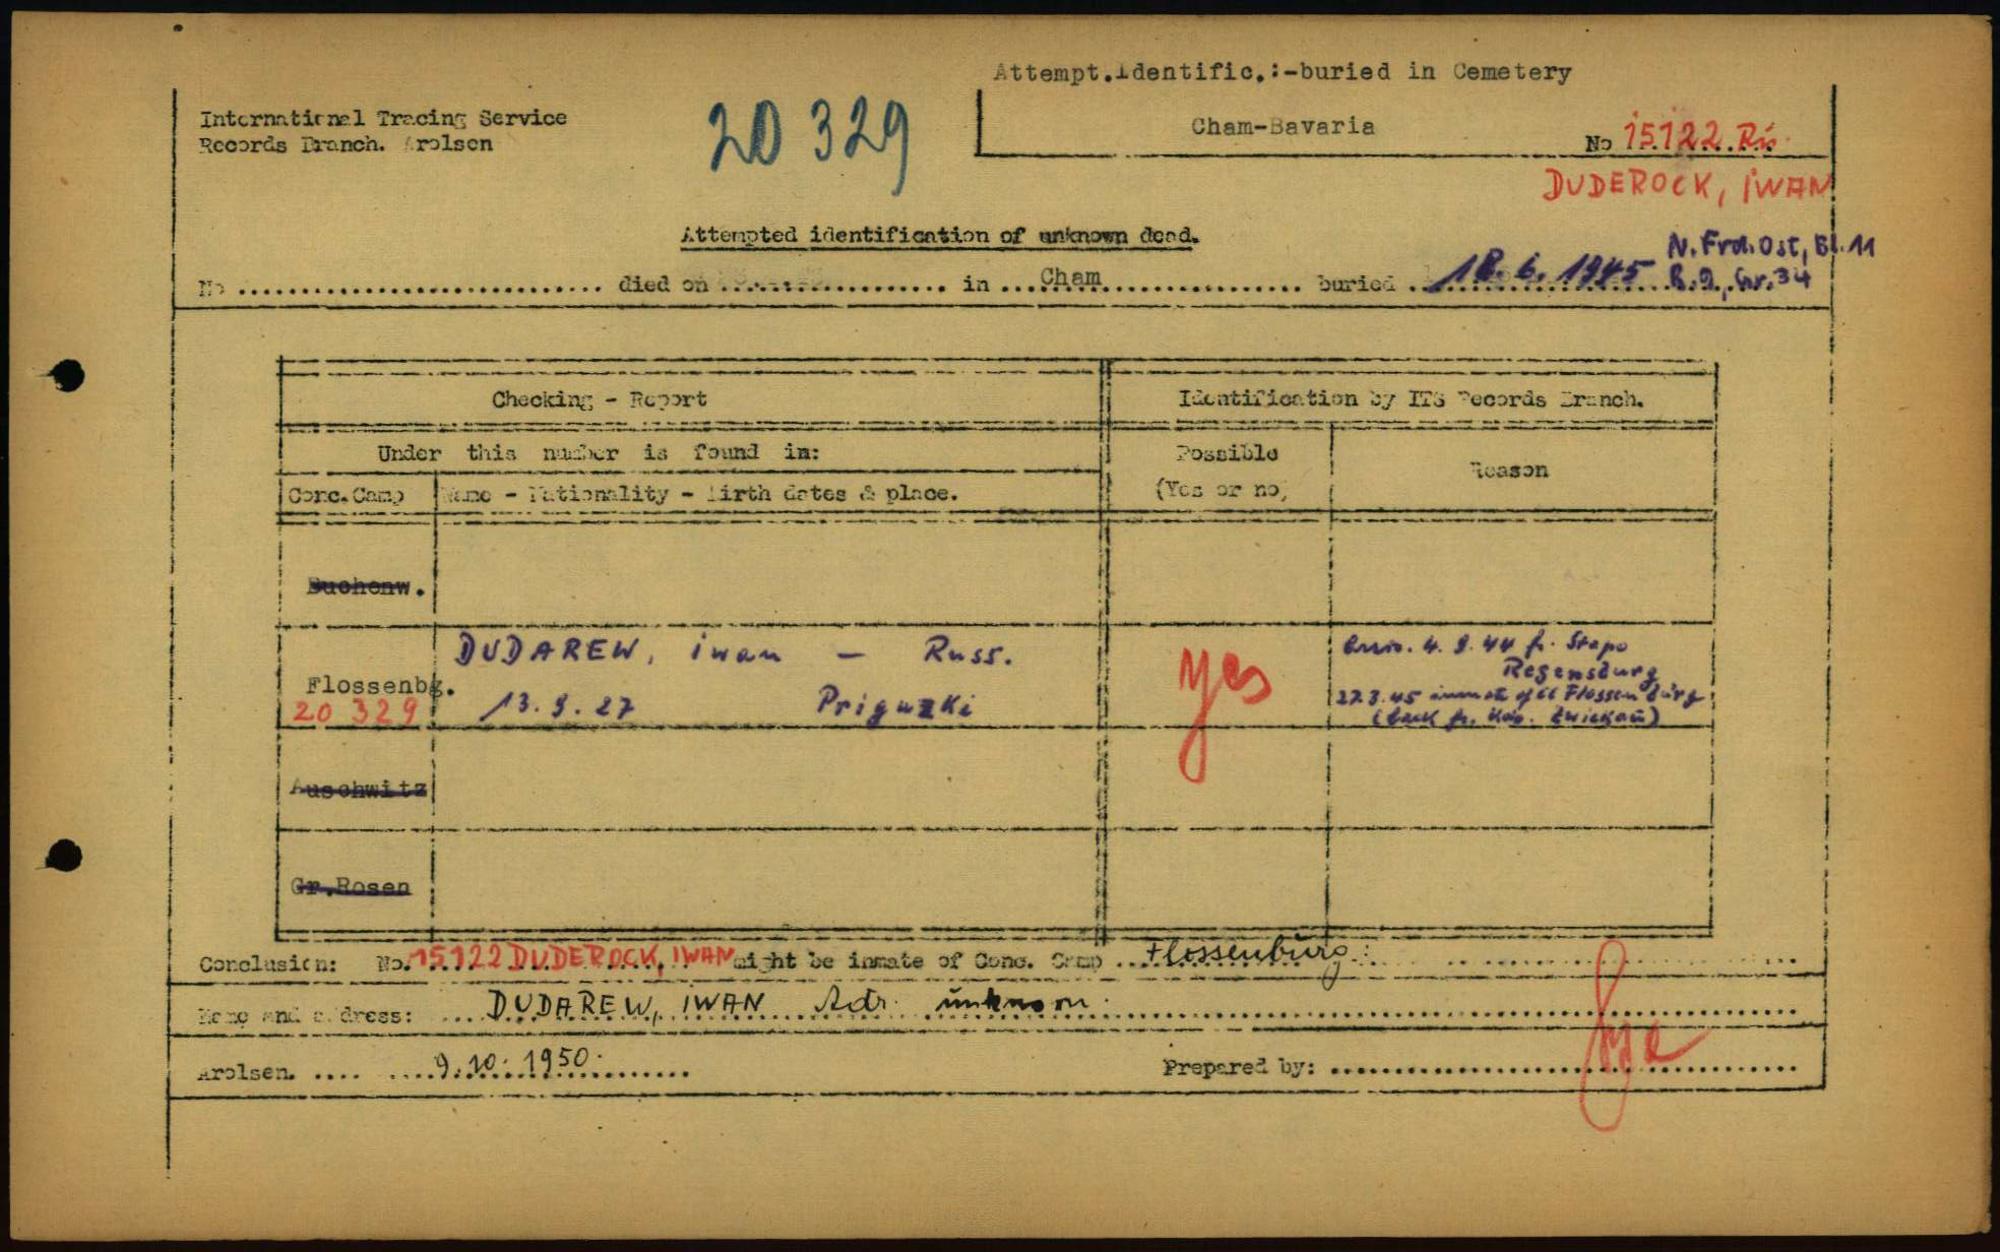 Attempt.Identific.:-buried in Cemetery
International Tracing Service
Records Branch. Arolsen
20 329
Cham-Bavaria
No 15122 Ru
DUDEROCK, IWAN
Attempted identification of unknown dead.
N. Frd. Ost, Bl. 11
No .......... died on .......... in ... Cham .......... buried 18. 6. 1945 R.9, Gr. 34
Checking - Report
Identification by ITS Records Branch.
Under this number is found in:
Possible
(Yes or no)
Reason
Conc.Camp
Name - Nationality - Birth dates & place.
Buchenw.
Flossenbg.
20 329
DUDAREW, iwan - Russ.
13. 9. 27 Priguzki
yes
4. 9. 44 fr. Stapo
Regensburg
27.3.45 inmate of CC Flossenbürg
(back fr. Kdo. Zwickau)
Auschwitz
Gr.Rosen
Conclusion: No. 15122 DUDEROCK, IWAN might be inmate of Conc. Camp Flossenbürg
Name and address: DUDAREW, IWAN Adr. unknown.
Arolsen. .... 9.10.1950.
Prepared by: ..........